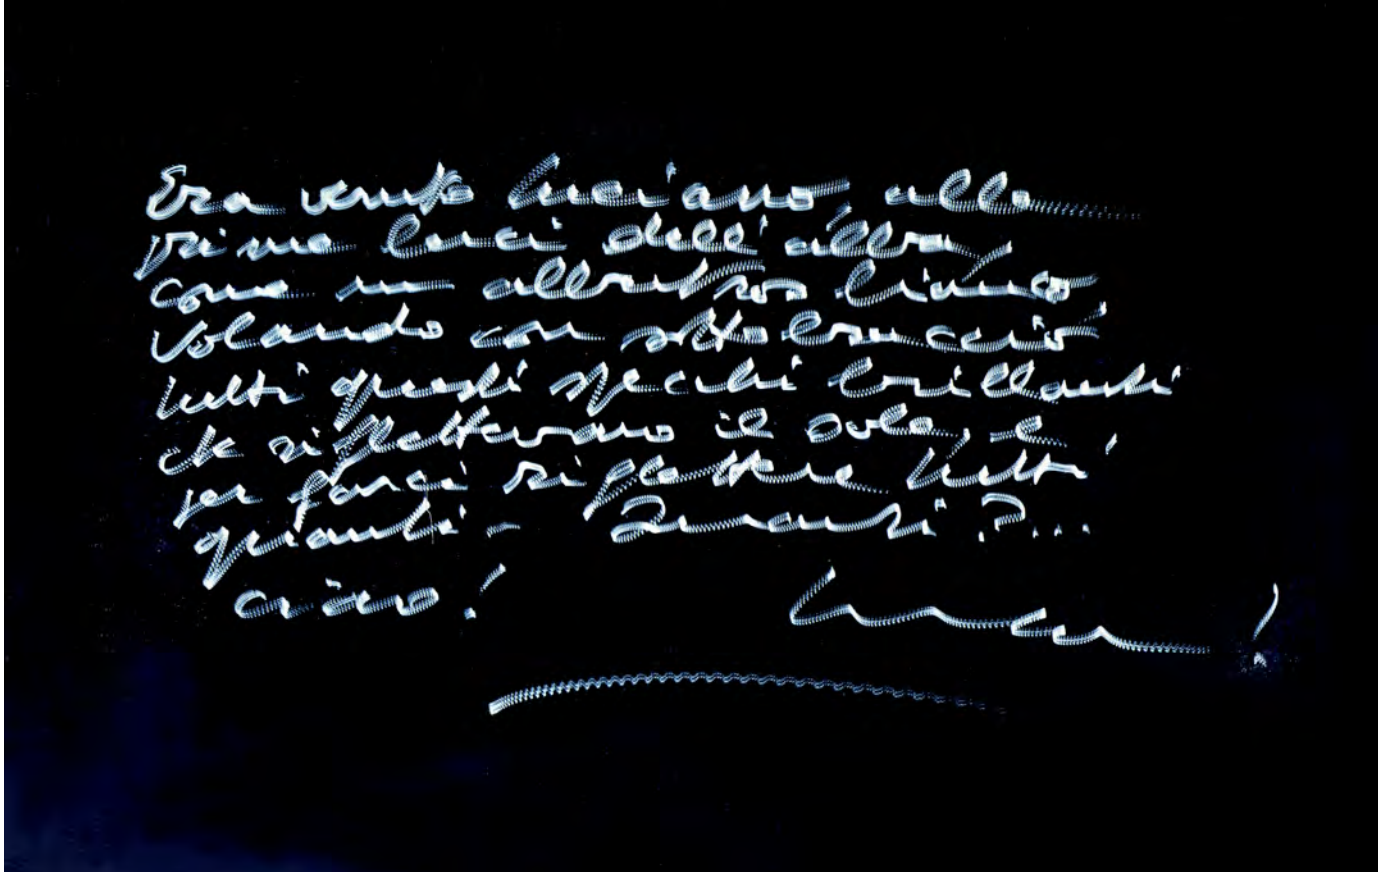 Era venuto Luciano, alle
prime luci dell'alba,
come un albatros bianco,
volando con sotto braccio
tutti questi specchi brillanti
che riflettevano il sole, e
per farci riflettere tutti
quanti - Quanti ?...
ciao!